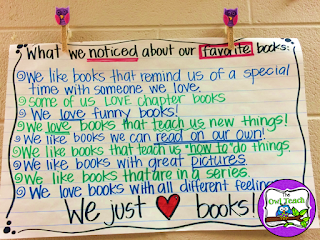 What we noticed about our favorite books:
We like books that remind us of a special
time with someone we love.
some of us LOVE chapter books
We love funny books!
We love books that teach us new things.
We like books we can read on our own!
We like books that teach us "how to" do things.
We like books with great pictures
We like books that are in a series.
We love books with all different feelings
We just ❤ books!
The
Owl Teach